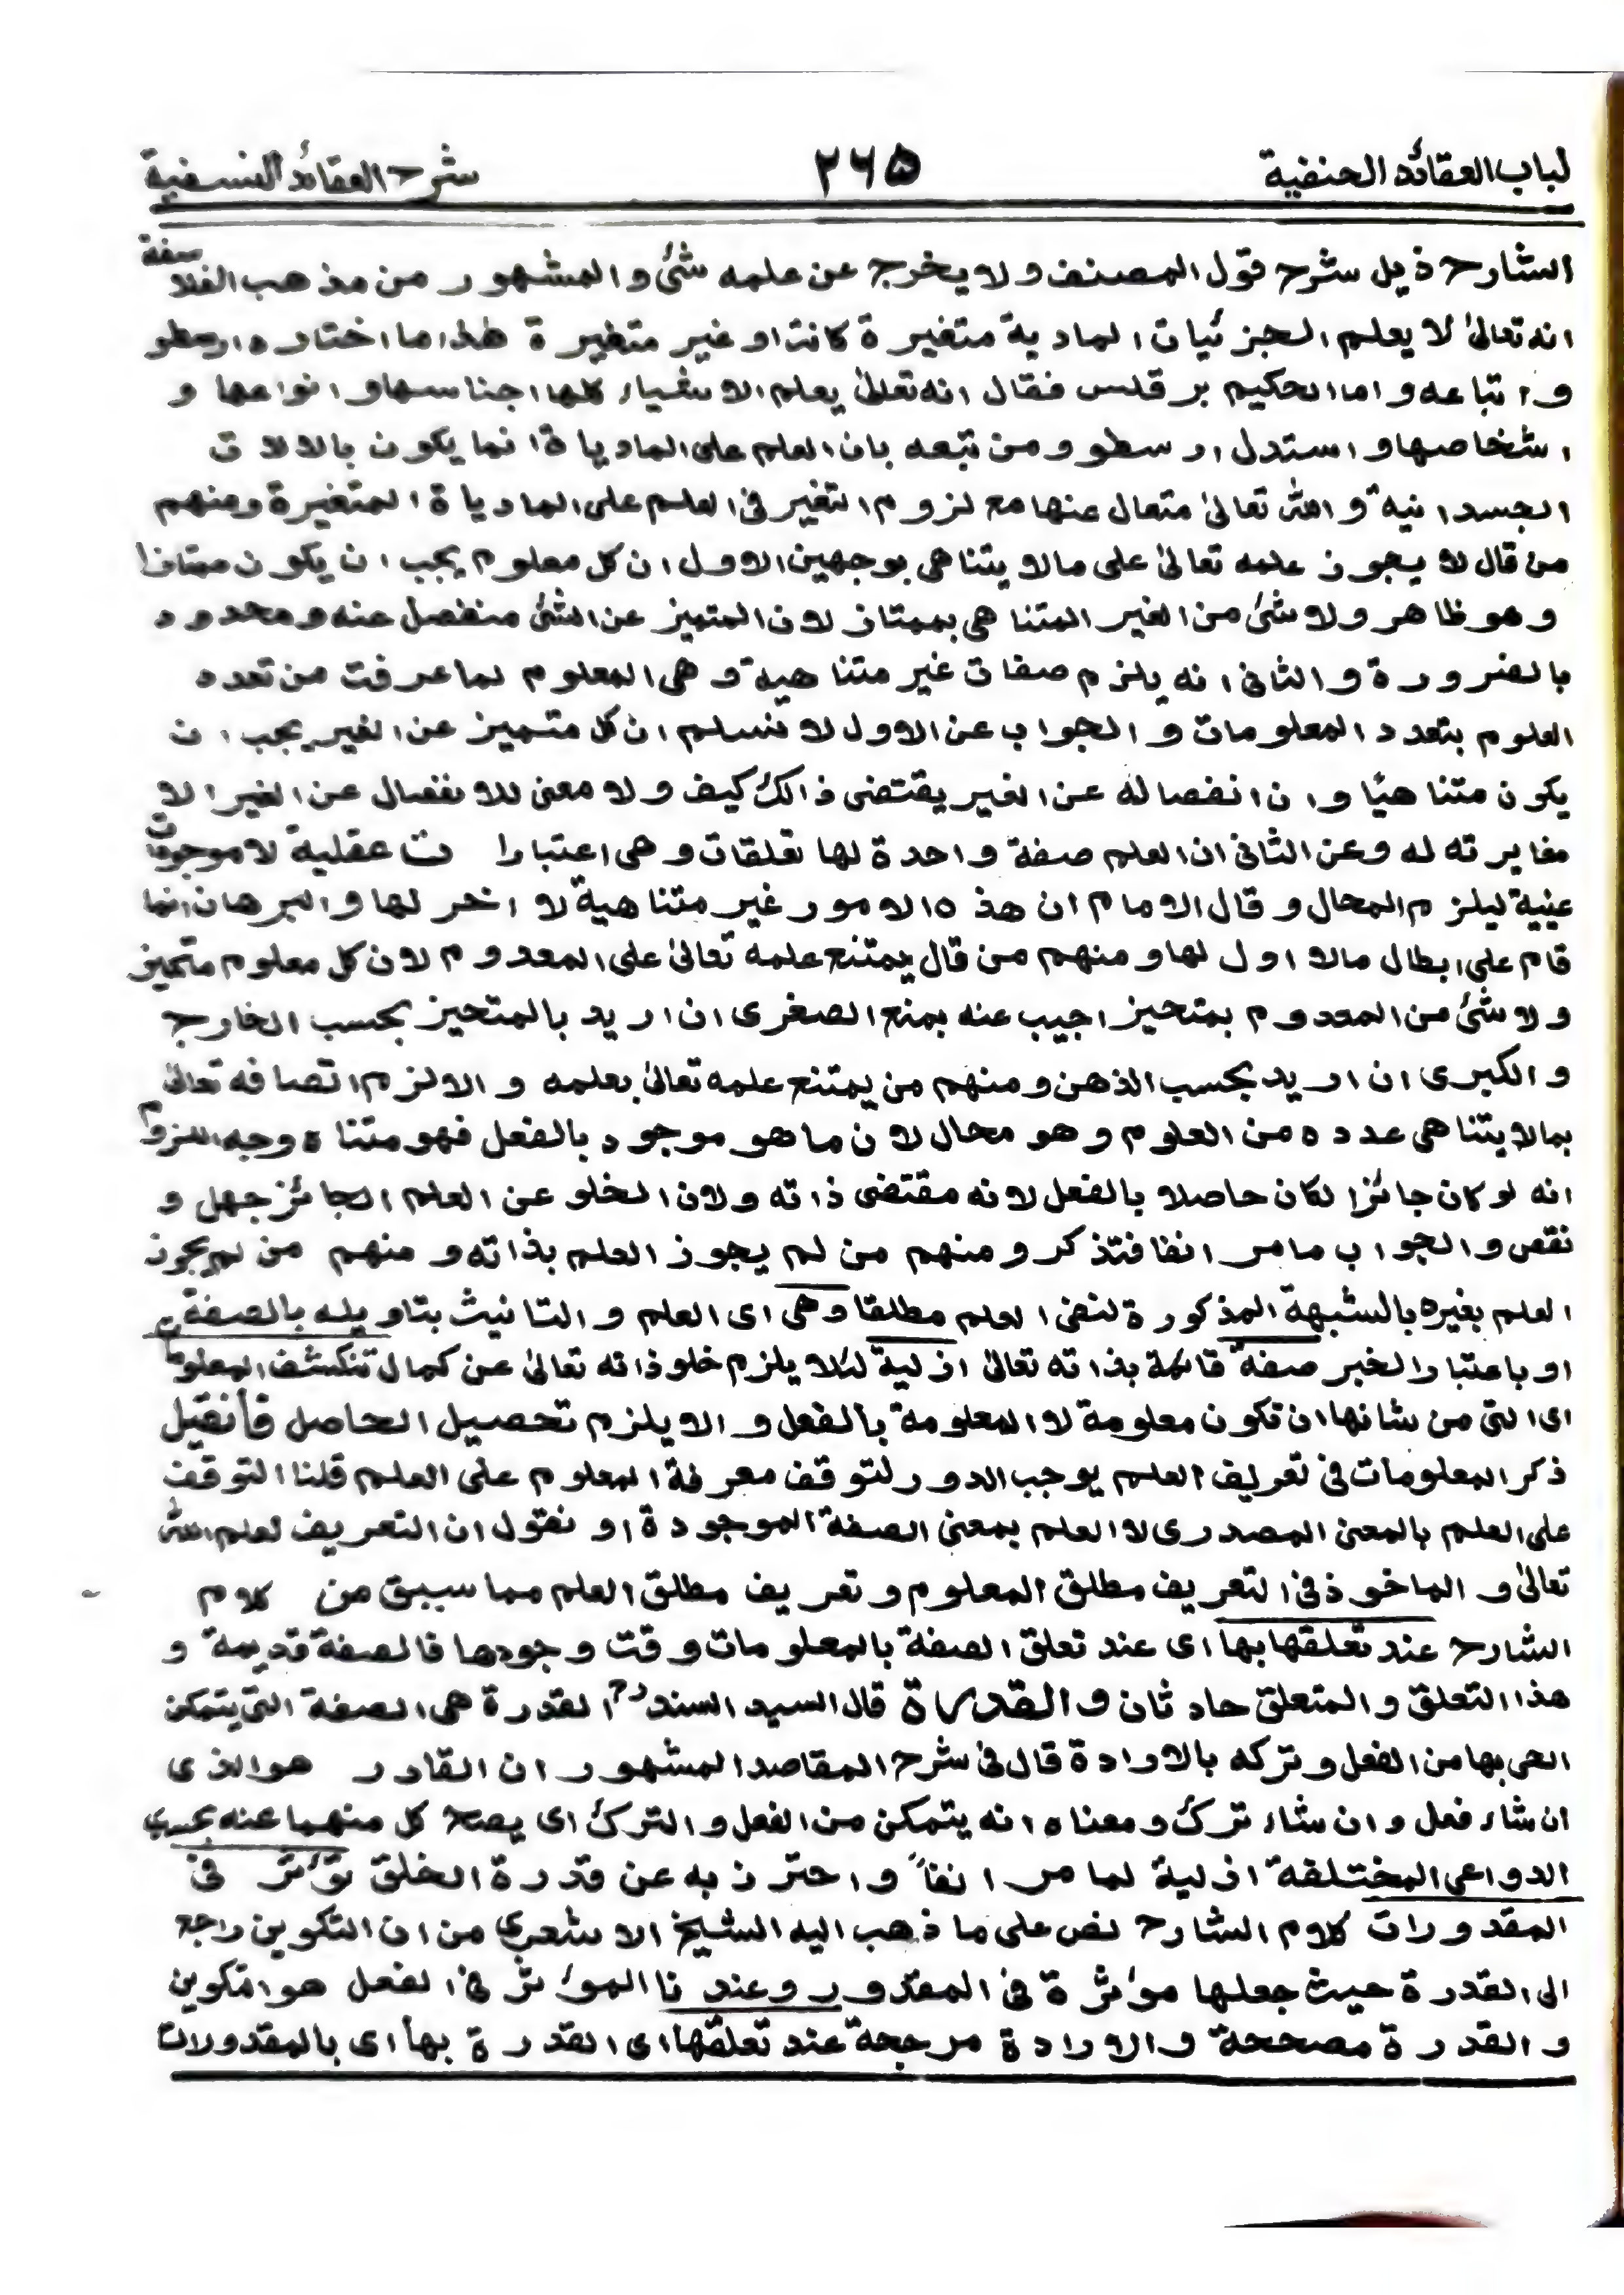 لباب العقائد الحنفية ۲۶۵ شرح العقائد النسفية
الشارح ذيل شرح قول المصنف ولا يخرج عن علمه شئ والمشهور من مذهب الفلاسفة
انه تعالىٰ لا يعلم الجزئيات المادية متغيرة كانت او غير متغيرة هٰذا ما اختاره ارسطو
واتباعه واما الحكيم برقلس فقال انه تعالىٰ يعلم الاشياء كلها اجناسها وانواعها و
اشخاصها واستدل ارسطو ومن تبعه بان العلم على المادياة انما يكون بالالات
الجسدانية والله تعالىٰ متعال عنها مع لزوم التغير فى العلم على المادياة المتغيرة ومنهم
من قال لا يجوز علمه تعالىٰ على مالا يتناهى بوجهين الاول ان كل معلوم يجب ان يكون ممتازا
وهو ظاهر ولا شئ من الغير المتناهى بممتاز لان المتميز عن الشئ منفصل عنه ومحدود
بالضرورة والثانى انه يلزم صفات غير متناهية وهى المعلوم لما عرفت من تعدد
العلوم بتعدد المعلومات والجواب عن الاول لا نسلم ان كل متميز عن الغير يجب ان
يكون متناهيًا وان انفصاله عن الغير يقتضى ذالك كيف ولا معنى للانفصال عن الغير الا
مغايرته له وعن الثانى ان العلم صفة واحدة لها تعلقات وهى اعتبارات عقلية لا موجودات
عينية ليلزم المحال وقال الامام ان هذه الامور غير متناهية لا اخر لها والبرهان انما
قام على ابطال مالا اول لها ومنهم من قال يمتنع علمه تعالىٰ على المعدوم لان كل معلوم متحيز
ولا شئ من المعدوم بمتحيز اجيب عنه بمنع الصغرى ان اريد بالمتحيز بحسب الخارج
والكبرى ان اريد بحسب الذهن ومنهم من يمتنع علمه تعالىٰ بعلمه والا لزم اتصافه تعالىٰ
بمالا يتناهى عدده من العلوم وهو محال لان ما هو موجود بالفعل فهو متناه وجه اللزوم
انه لو كان جائزا لكان حاصلا بالفعل لانه مقتضى ذاته ولان الخلو عن العلم الجائز جهل و
نقص والجواب مامر انفا فتذكر ومنهم من لم يجوز العلم بذاته ومنهم من لم يجوز
العلم بغيره بالشبهة المذكورة لنفى العلم مطلقا وهى اى العلم والتانيث بتاويله بالصفة
او باعتبار الخبر صفة قائمة بذاته تعالىٰ ازلية لئلا يلزم خلو ذاته تعالىٰ عن كمال تنكشف المعلومات
اى التى من شانها ان تكون معلومة لا المعلومة بالفعل والا يلزم تحصيل الحاصل فأن قيل
ذكر المعلومات فى تعريف العلم يوجب الدور لتوقف معرفة المعلوم على العلم قلنا التوقف
على العلم بالمعنى المصدرى لا العلم بمعنى الصفة الموجودة او نقول ان التعريف لعلم الله
تعالىٰ والماخوذ فى التعريف مطلق المعلوم وتعريف مطلق العلم مما سبق من كلام
الشارح عند تعلقها بها اى عند تعلق الصفة بالمعلومات وقت وجودها فالصفة قديمة و
هذا التعلق والمتعلق حادثان والقدرة قال السيد السند القدرة هى الصفة التى يتمكن
الحى بها من الفعل وتركه بالارادة قال فى شرح المقاصد المشهور ان القادر هو الذى
ان شاء فعل وان شاء ترك ومعناه انه يتمكن من الفعل والترك اى يصح كل منهما عنه بحسب
الدواعى المختلفة ازلية لما مر انفاً واحترز به عن قدرة الخلق تؤثر فى
المقدورات كلام الشارح نص على ما ذهب اليه الشيخ الاشعرى من ان التكوين راجع
الى القدرة حيث جعلها مؤثرة فى المقدور وعندنا المؤثر فى الفعل هو التكوين
والقدرة مصححة والارادة مرجحة عند تعلقها اى القدرة بها اى بالمقدورات